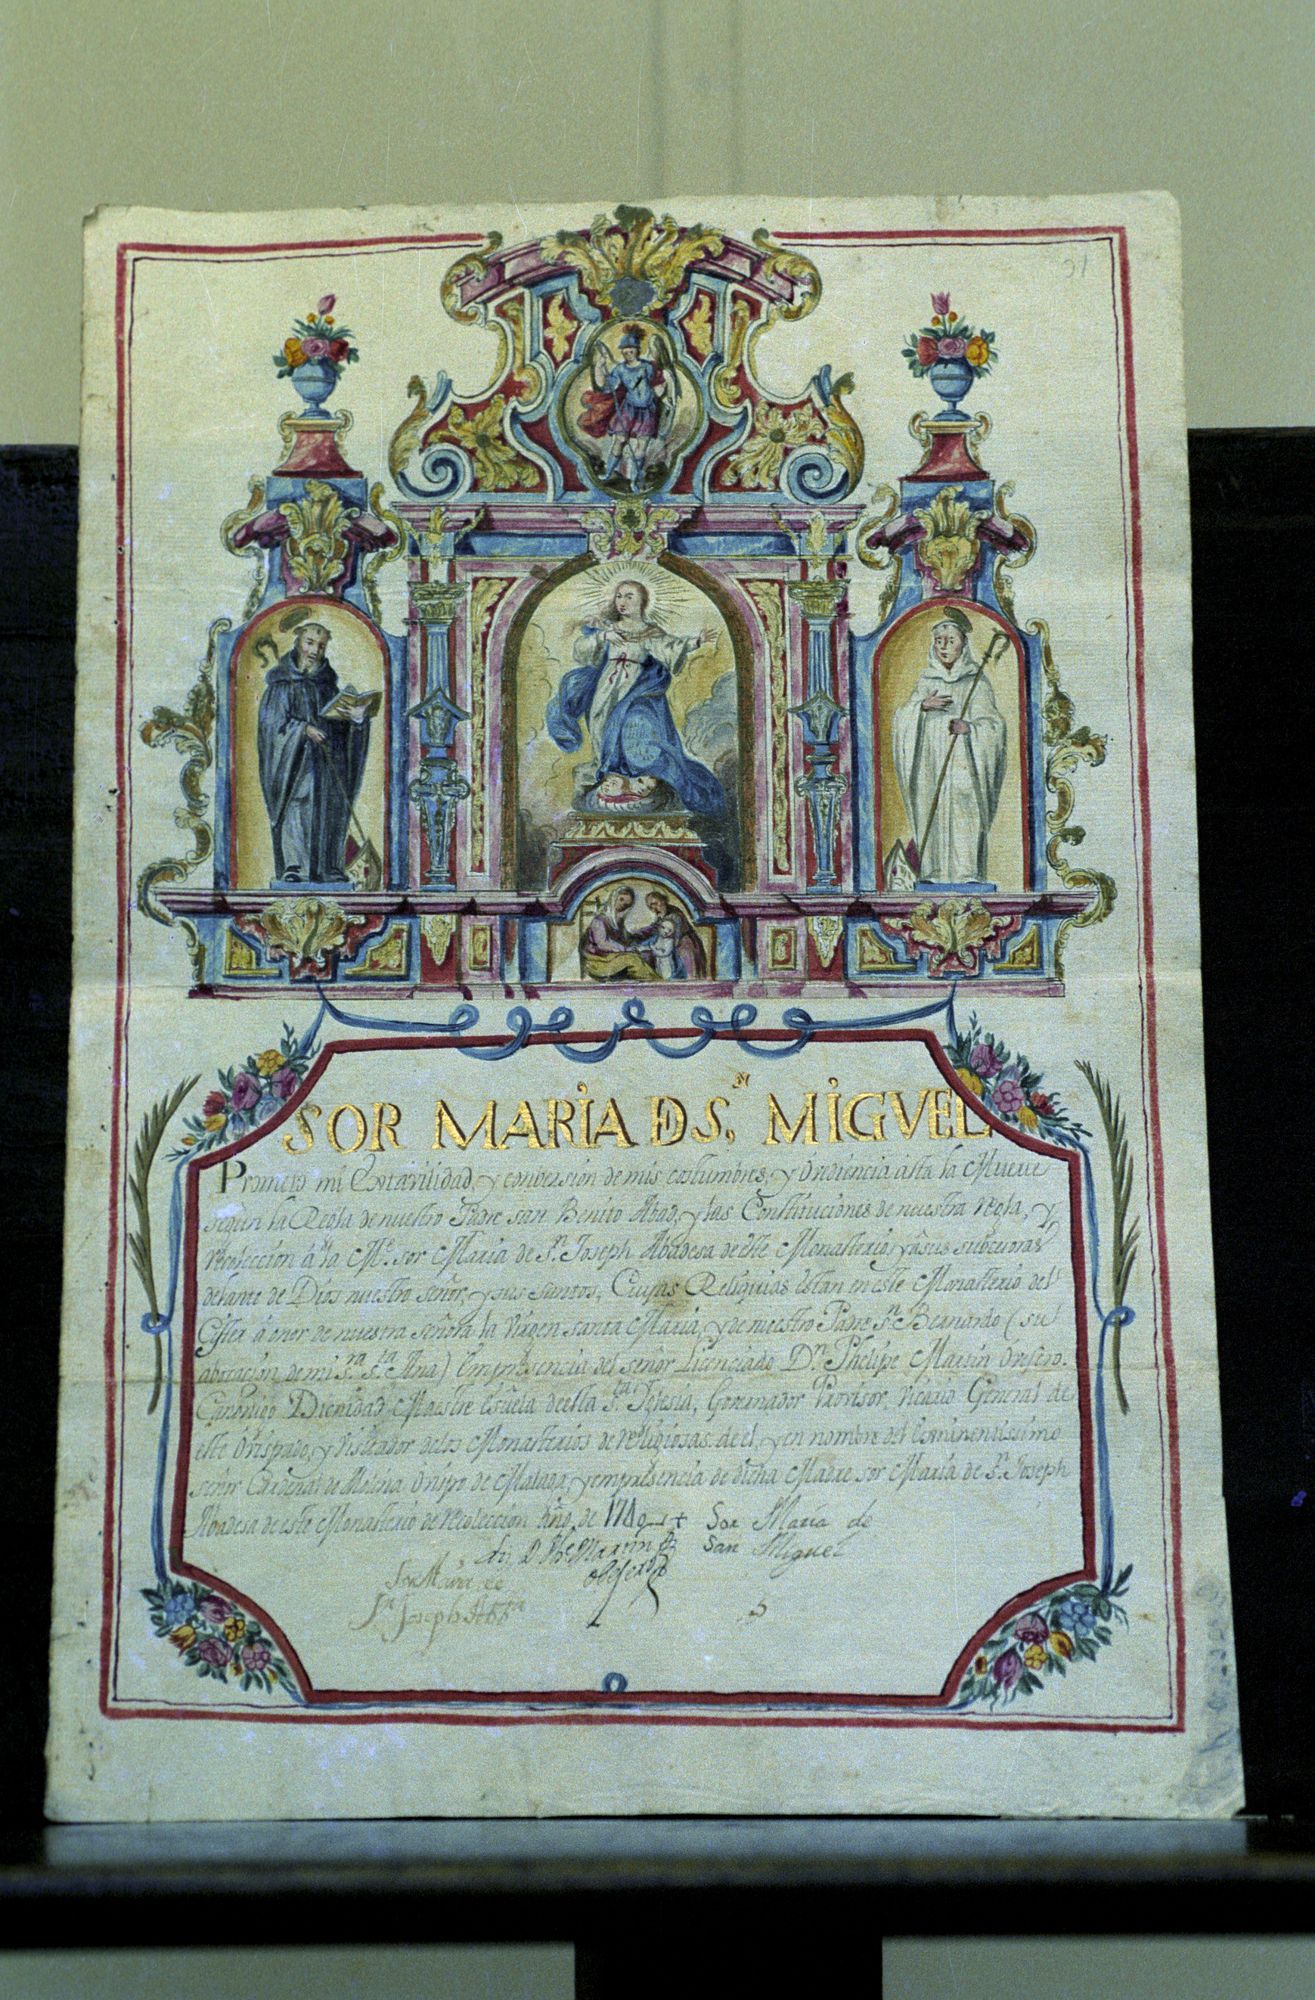 91
SOR MARIA D S.N MIGVEL
Prometo mi Estavilidad, y conversion de mis costumbres, y Ovediencia asta la Muerte
segun la Regla de nuestro Padre san Benito Abad, y las Constituciones de nuestra regla, y
recoleccion á la Me. sor Maria de Sn. Joseph Abadesa de este Monasterio, y á sus subcesoras
delante de Dios nuestro señor, y sus santos, Cuyas Reliquias estan en este Monasterio del
Cister á onor de nuestra señora la Virgen santa Maria, y de nuestro Padre Sn. Bernardo (su
abocación de mi sra. sta. Ana) Empresencia del señor Licenciado Dn. Phelipe Martin Ovesero.
Canonigo Dignidad Maestre Escuela de esta Sta. Iglesia, Governador Provisor, Vicario General de
este Ovispado, y Visitador de los Monasterios de religiosas de el, y en nombre del Eminentissimo
señor Cardenal de Molina Ovispo de Malaga, y empresencia de dicha Madre sor Maria de Sn. Joseph
Abadesa de este Monasterio de recoleccion Año. de 1740 + Sor Maria de
San Miguel
Martin
Sor Maria de
Sn Joseph Abba